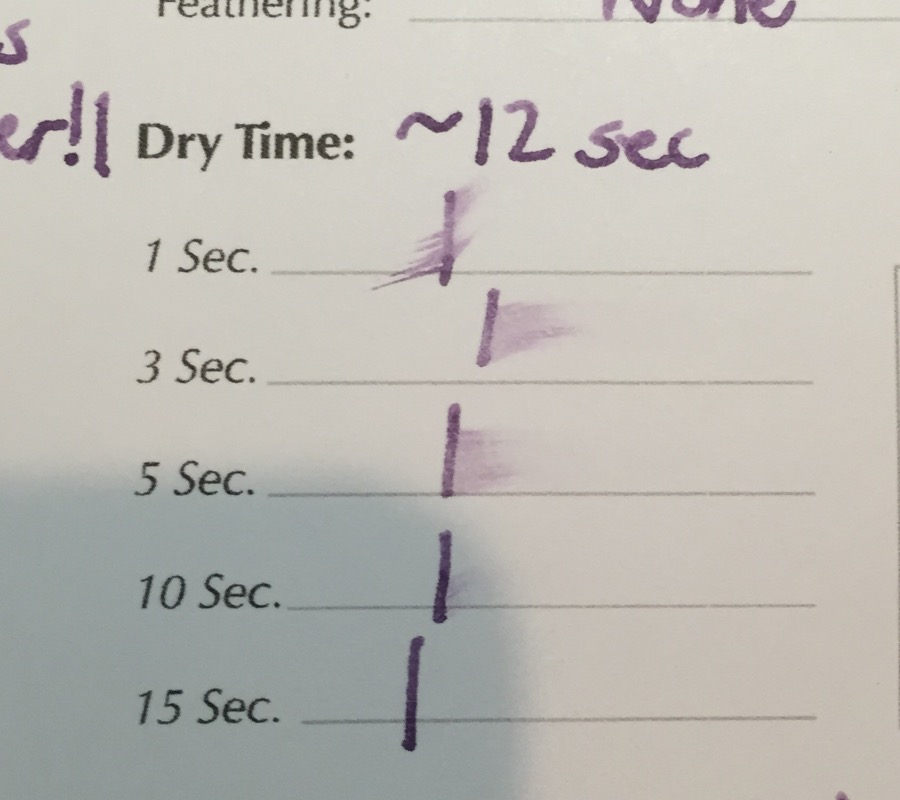 Feathering: None
s
er!! Dry Time: ~12 sec
1 Sec.
3 Sec.
5 Sec.
10 Sec.
15 Sec.